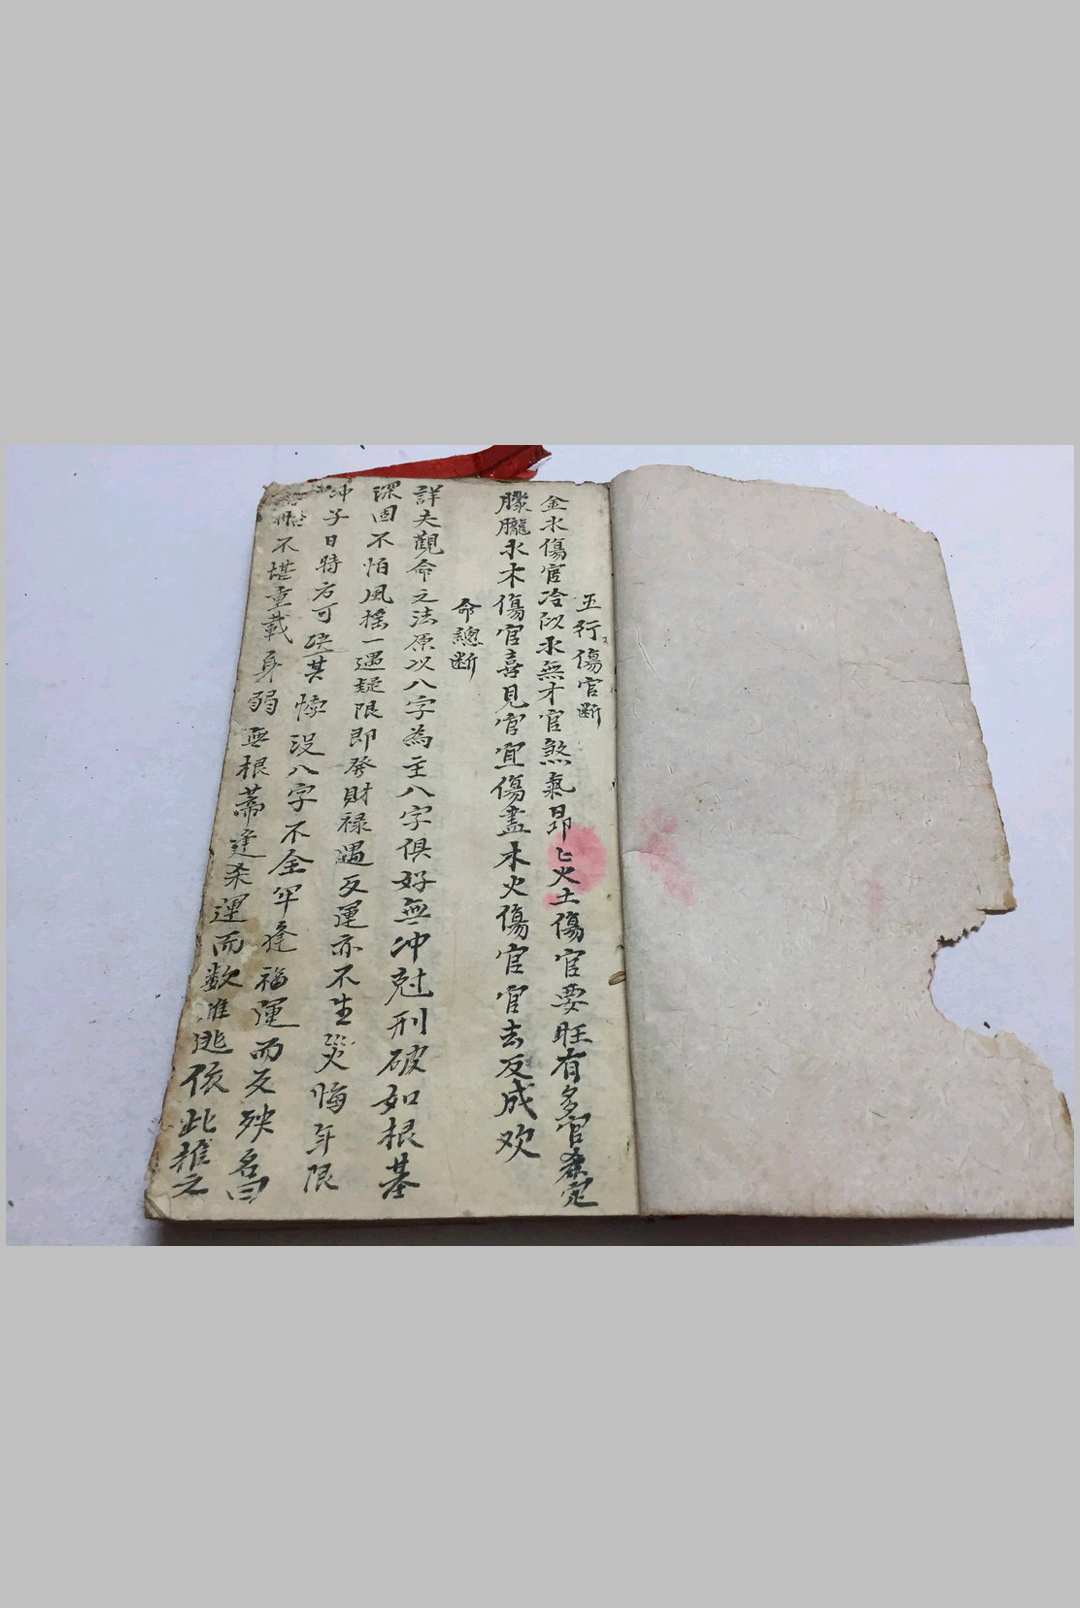 五行傷官断
金水傷官冷似氷無才官煞氣昴〻火土傷官要旺有多官杀定
朦朧水木傷官喜見官宜傷盡木火傷官官去反成欢
命總断
詳夫觀命之法原以八字為主八字俱好無冲尅刑破如根基
深固不怕風搖一遇疑限即發財禄遇反運亦不生災悔年限
冲子日時方可其悽没八字不全年逢福運而反殃名曰
不堪重載身弱無根蒂逢杀運而数难逃依此推之